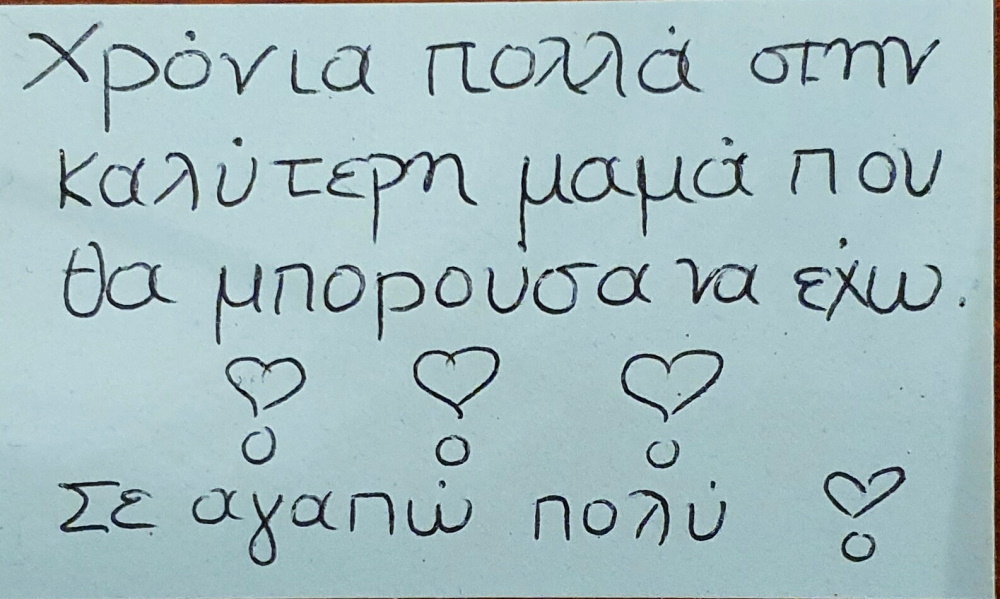 Χρόνια πολλά στην
καλύτερη μαμά που
θα μπορούσα να έχω.
Σε αγαπώ πολύ